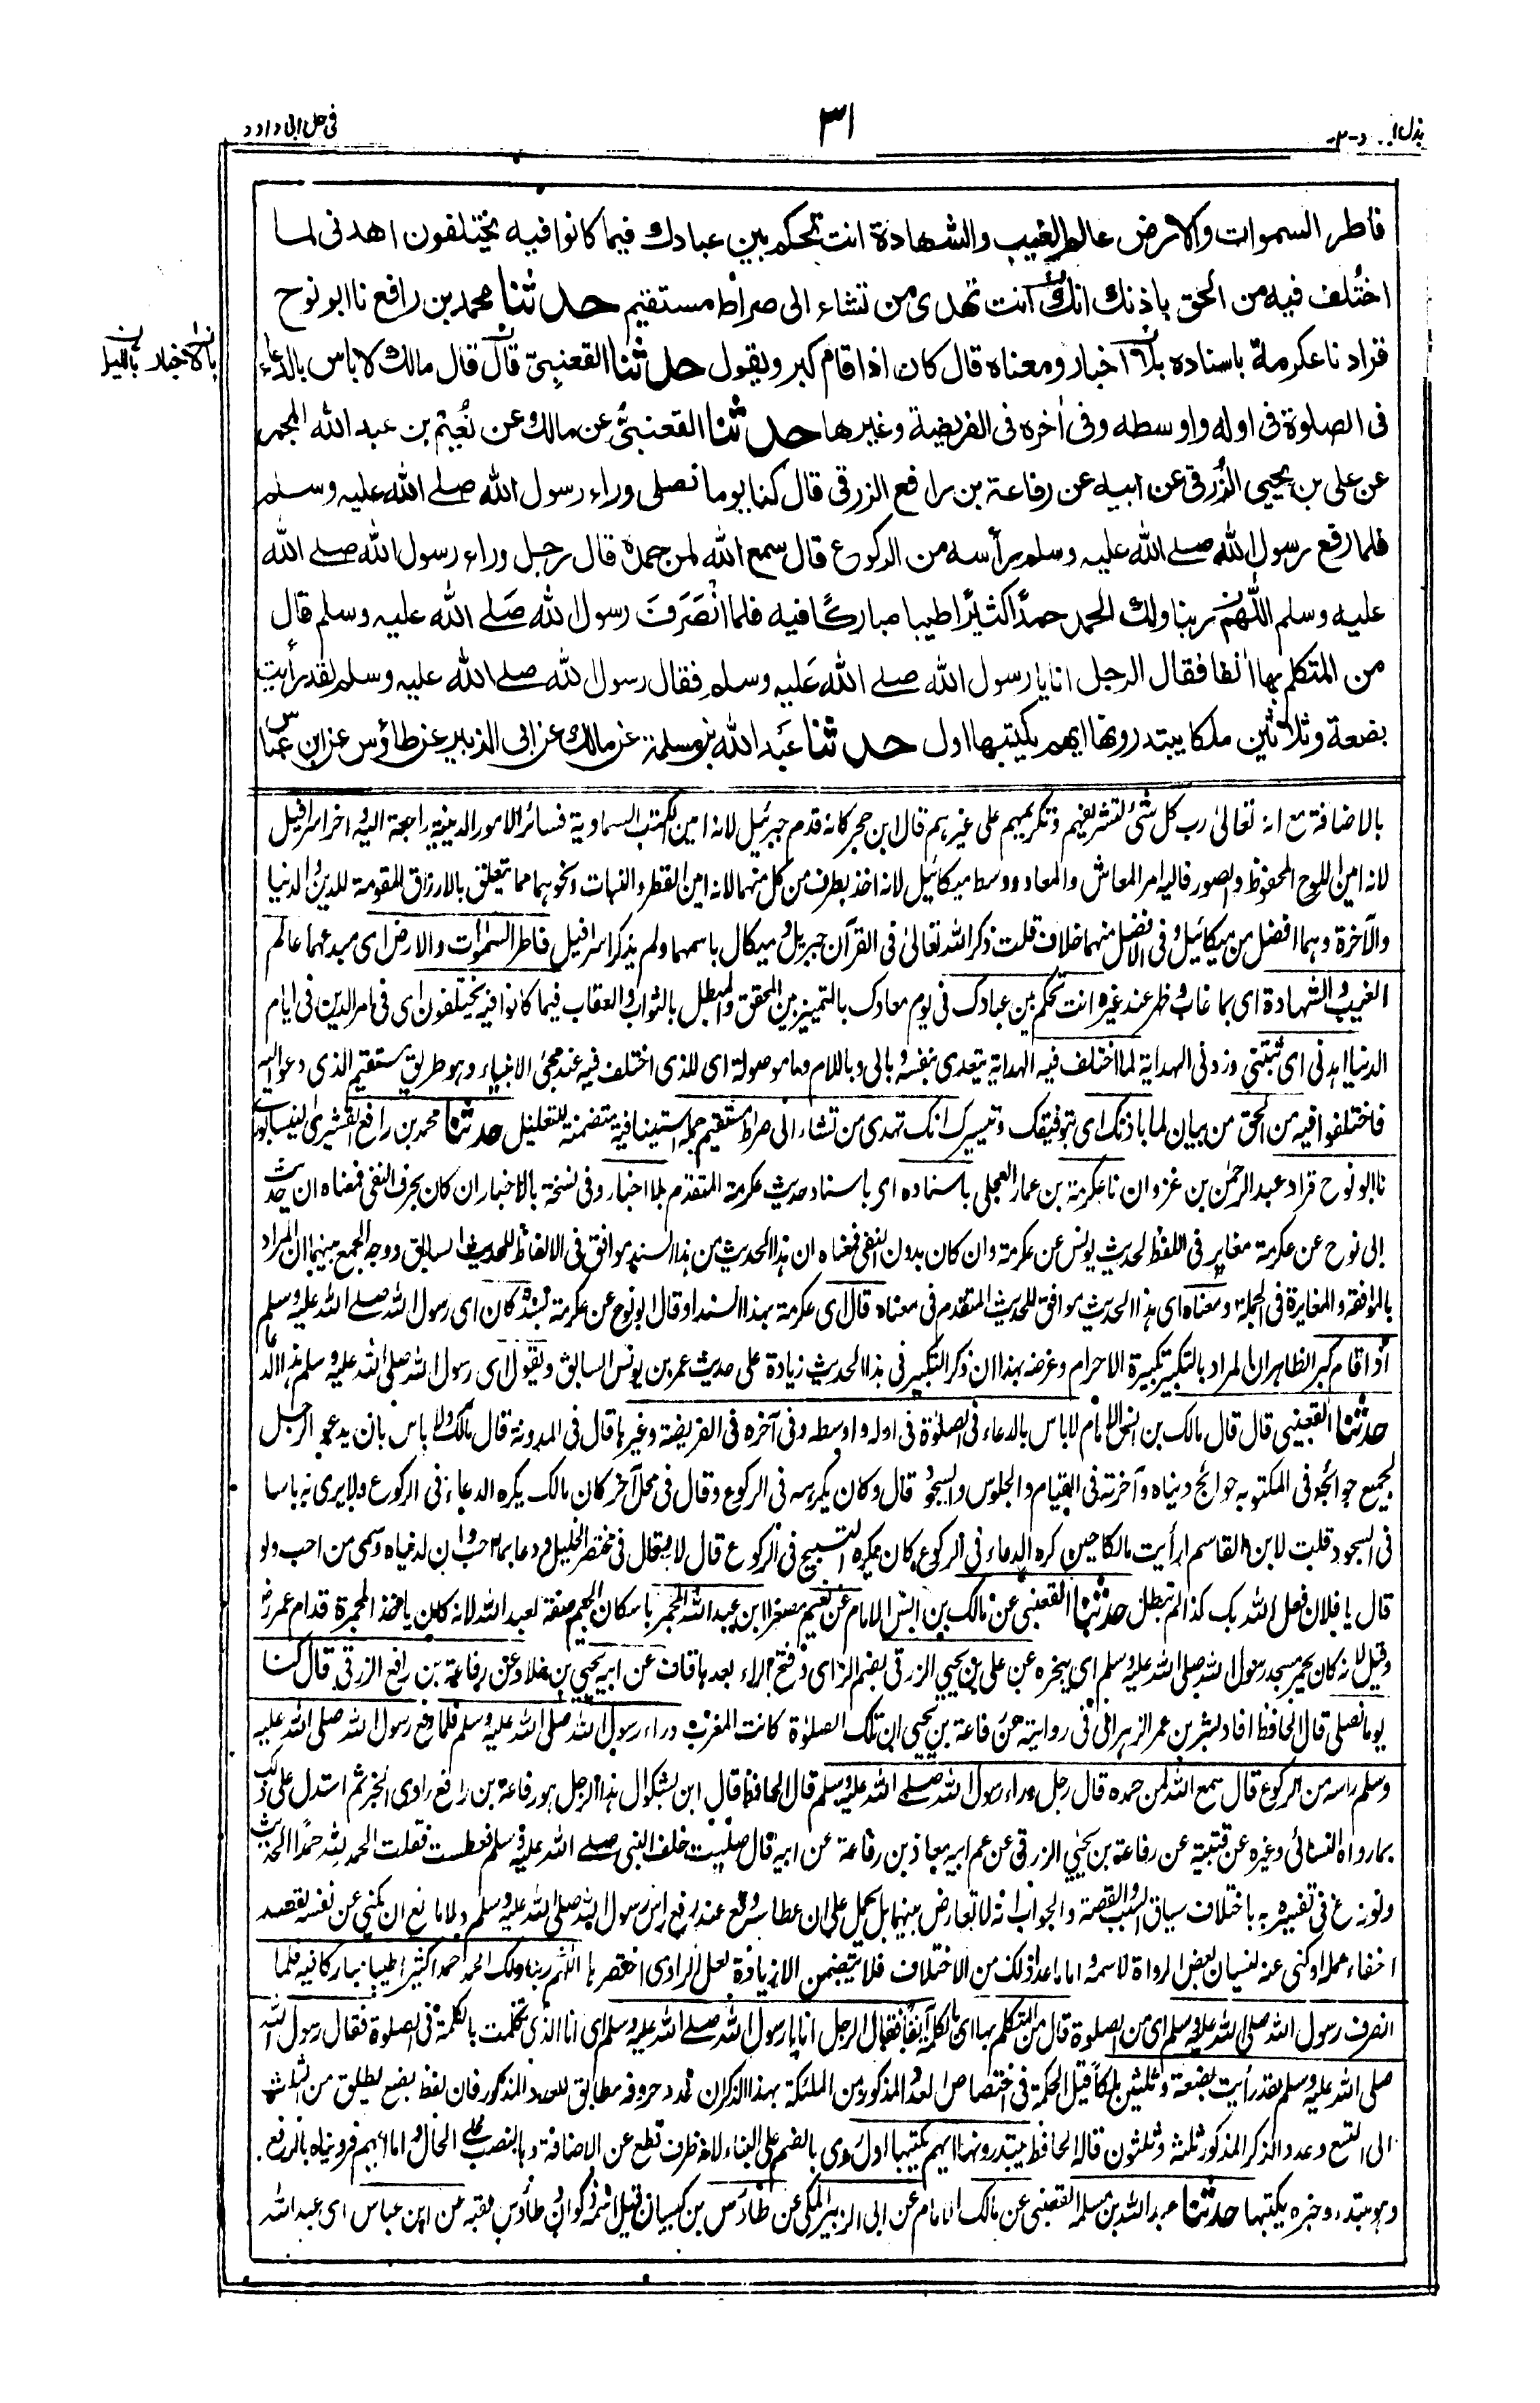 في حل ابي داود
٣١
فاطر السموات والارض عالم الغيب والشهادة انت تحكم بين عبادك فيما كانوا فيه يختلفون اهدنى لما
اختُلف فيه من الحق باذنك انك انت تهدى من تشاء الى صراط مستقيم حدثنا محمد بن رافع نا ابو نوح
قراد نا عكرمة باسناده بلا اخبار ومعناه قال كان اذا قام كبر ويقول حدثنا القعنبى قال قال مالك لا باس بالدعاء
بالاخبار
فى الصلوة فى اوله واوسطه وفى اٰخره فى الفريضة وغيرها حدثنا القعنبىُّ عن مالك عن نُعَيْم بن عبد الله المجمر
عن على بن يحيى الزُرقى عن ابيه عن رفاعة بن رافع الزرقى قال كنا يوما نصلى وراء رسول الله صلے الله عليه وسلم
فلما رفع رسول الله صلے الله عليه وسلم رأسه من الركوع قال سمع الله لمن حمده قال رجل وراء رسول الله صلے الله
عليه وسلم اللّٰهم ربنا ولك الحمد حمدًا كثيرًا طيبا مباركًا فيه فلما انْصَرَفَ رسول الله صَلے الله عليه وسلم قال
من المتكلم بها اٰنفا فقال الرجل انا يا رسول الله صلے الله عَليه وسلم فقال رسول الله صلے الله عليه وسلم لقد رأيت
بضعة وثلاثين ملكا يبتدرونها ايهم يكتبها اول حدثنا عَبد الله بن مسلمة عن مالك عن ابى الزبير عن طاؤس عن ابن عبّاس
بالاضافة مع انه تعالىٰ رب كل شئ لتشريفهم وتكريمهم على غيرهم قال ابن حجر كانه قدم جبرئيل لانه امين الكتب السماوية فسائر الامور الدينية راجعة اليه واخر اسرافيل
لانه امين اللوح المحفوظ والصور فاليه امر المعاش والمعاد ووسط ميكائيل لانه اخذ بطرف من كل منهما لانه امين القطر والنبات ونحوهما مما يتعلق بالارزاق المقومة للدين والدنيا
والآخرة وهما افضل من ميكائيل وفى الافضل منهما خلاف قلت ذكر الله تعالىٰ فى القرآن جبريل وميكال باسمهما ولم يذكر اسرافيل فاطر السمٰوات والارض اى مبدعهما عالم
الغيب والشهادة اى بما غاب وظهر عند غيره انت تحكم بين عبادك فى يوم معادك بالتمييز بين المحقق والمبطل بالثواب والعقاب فيما كانوا فيه يختلفون اى فى امر الدين فى ايام
الدنيا اهدنى اى ثبتنى وزدنى الهداية لما اختلف فيه الهداية يتعدى بنفسه وبالى وباللام وما موصولة اى للذى اختلف فيه عند مجئ الانبياء وهو طريق مستقيم الذى دعوا اليه
فاختلفوا فيه من الحق من بيان لما باذنك اى بتوفيقك وتيسيرك انك تهدى من تشاء الى صراط مستقيم جملة استينافية متضمنة للتعليل حدثنا محمد بن رافع القشيرى النيسابورى
نا ابو نوح قراد عبد الرحمٰن بن غزوان نا عكرمة بن عمار العجلى باسناده اى باسناد حديث عكرمة المتقدم بلا اخبار وفى نسخة بالاخبار ان كان بحرف النفى فمعناه ان حديث
ابى نوح عن عكرمة مغاير فى اللفظ لحديث يونس عن عكرمة وان كان بدون النفى فمعناه ان هذا الحديث من هذا السند موافق فى الالفاظ للحديث السابق ووجه الجمع بينهما ان المراد
بالموافقة والمغايرة فى الجملة ومعناه اى هذا الحديث موافق للحديث المتقدم فى معناه قال اى عكرمة بهذا السند او قال ابو نوح عن عكرمة بسنده كان اى رسول الله صلے الله عليه وسلم
اذا قام كبر الظاهر ان المراد بالتكبير تكبيرة الاحرام وغرضه بهذا ان ذكر التكبير فى هذا الحديث زيادة على حديث عمر بن يونس السابق ويقول اى رسول الله صلى الله عليه وسلم هذا الدعاء
حدثنا القعنبى قال قال مالك بن انس الامام لا باس بالدعاء فى الصلوٰة فى اوله واوسطه وفى آخره فى الفريضة وغيرها قال فى المدونة قال مالك ولا باس بان يدعو الرجل
لجميع حوائجه فى المكتوبة حوائج دنياه وآخرته فى القيام والجلوس والسجود قال وكان يكرهه فى الركوع وقال فى محل آخر كان مالك يكره الدعاء فى الركوع ولا يرى به باسا
فى السجود قلت لابن القاسم ارأيت مالكا حين كره الدعاء فى الركوع كان يكره التسبيح فى الركوع قال لا وقال فى مختصر الخليل ودعا بما احب وان لدنياه وسمى من احب ولو
قال يا فلان فعل الله بك كذا لم تبطل حدثنا القعنبى عن مالك بن انس الامام عن نعيم مصغرا ابن عبد الله المجمر باسكان الجيم صفة لعبد الله لانه كان ياخذ المجمرة قدام عمر رض
وقيل لانه كان يجمر مسجد رسول الله صلى الله عليه وسلم اى يبخره عن على بن يحيى الزرقى بضم الزاى وفتح الراء بعدها قاف عن ابيه يحيى بن خلاد عن رفاعة بن رافع الزرقى قال كنا
يوما نصلى قال الحافظ افاد بشر بن عمر الزهرانى فى روايته عن رفاعة بن يحيى ان تلك الصلوٰة كانت المغرب وراء رسول الله صلى الله عليه وسلم فلما رفع رسول الله صلى الله عليه
وسلم راسه من الركوع قال سمع الله لمن حمده قال رجل وراء رسول الله صلے الله عليه وسلم قال الحافظ قال ابن بشكوال هذا الرجل هو رفاعة بن رافع راوى الخبر ثم استدل على ذلك
بما رواه النسائى وغيره عن قتيبة عن رفاعة بن يحيى الزرقى عن عم ابيه معاذ بن رفاعة عن ابيه قال صليت خلف النبى صلے الله عليه وسلم فعطست فقلت الحمد لله حمدًا الحديث
ونوزع فى تفسيره به باختلاف سياق السبب والقصة والجواب انه لا تعارض بينهما بل يحمل على ان عطاسه وقع عند رفع راس رسول الله صلى الله عليه وسلم ولا مانع ان يكنى عن نفسه لقصد
اخفاء عمله او كنى عنه لنسيان بعض الرواة لاسمه واما ما عدا ذلك من الاختلاف فلا يتضمن الا زيادة لعل الراوى اختصرها اللّٰهم ربنا ولك الحمد حمدا كثيرا طيبا مباركا فيه فلما
انصرف رسول الله صلى الله عليه وسلم اى من الصلوة قال من المتكلم بها اى بالكلمة آنفا فقال الرجل انا يا رسول الله صلے الله عليه وسلم اى انا الذى تكلمت بالكلمة فى الصلوة فقال رسول الله
صلى الله عليه وسلم لقد رأيت بضعة وثلٰثين ملكًا قيل الحكمة فى اختصاص العدد المذكور من الملئكة بهذا الذكر ان عدد حروفه مطابق للعدد المذكور فان لفظ بضع يطلق من الثلاث
الى التسع وعدد الذكر المذكور ثلثة وثلثون قاله الحافظ يبتدرونها ايهم يكتبها اول روى بالضم على البناء لانه ظرف قطع عن الاضافة وبالنصب على الحال واما ايهم فرويناه بالرفع
وهو مبتدء وخبره يكتبها حدثنا عبد الله بن مسلمة القعنبى عن مالك الامام عن ابى الزبير المكى عن طاؤس بن كيسان قيل اسمه ذكوان وطاؤس لقبه عن ابن عباس اى عبد الله